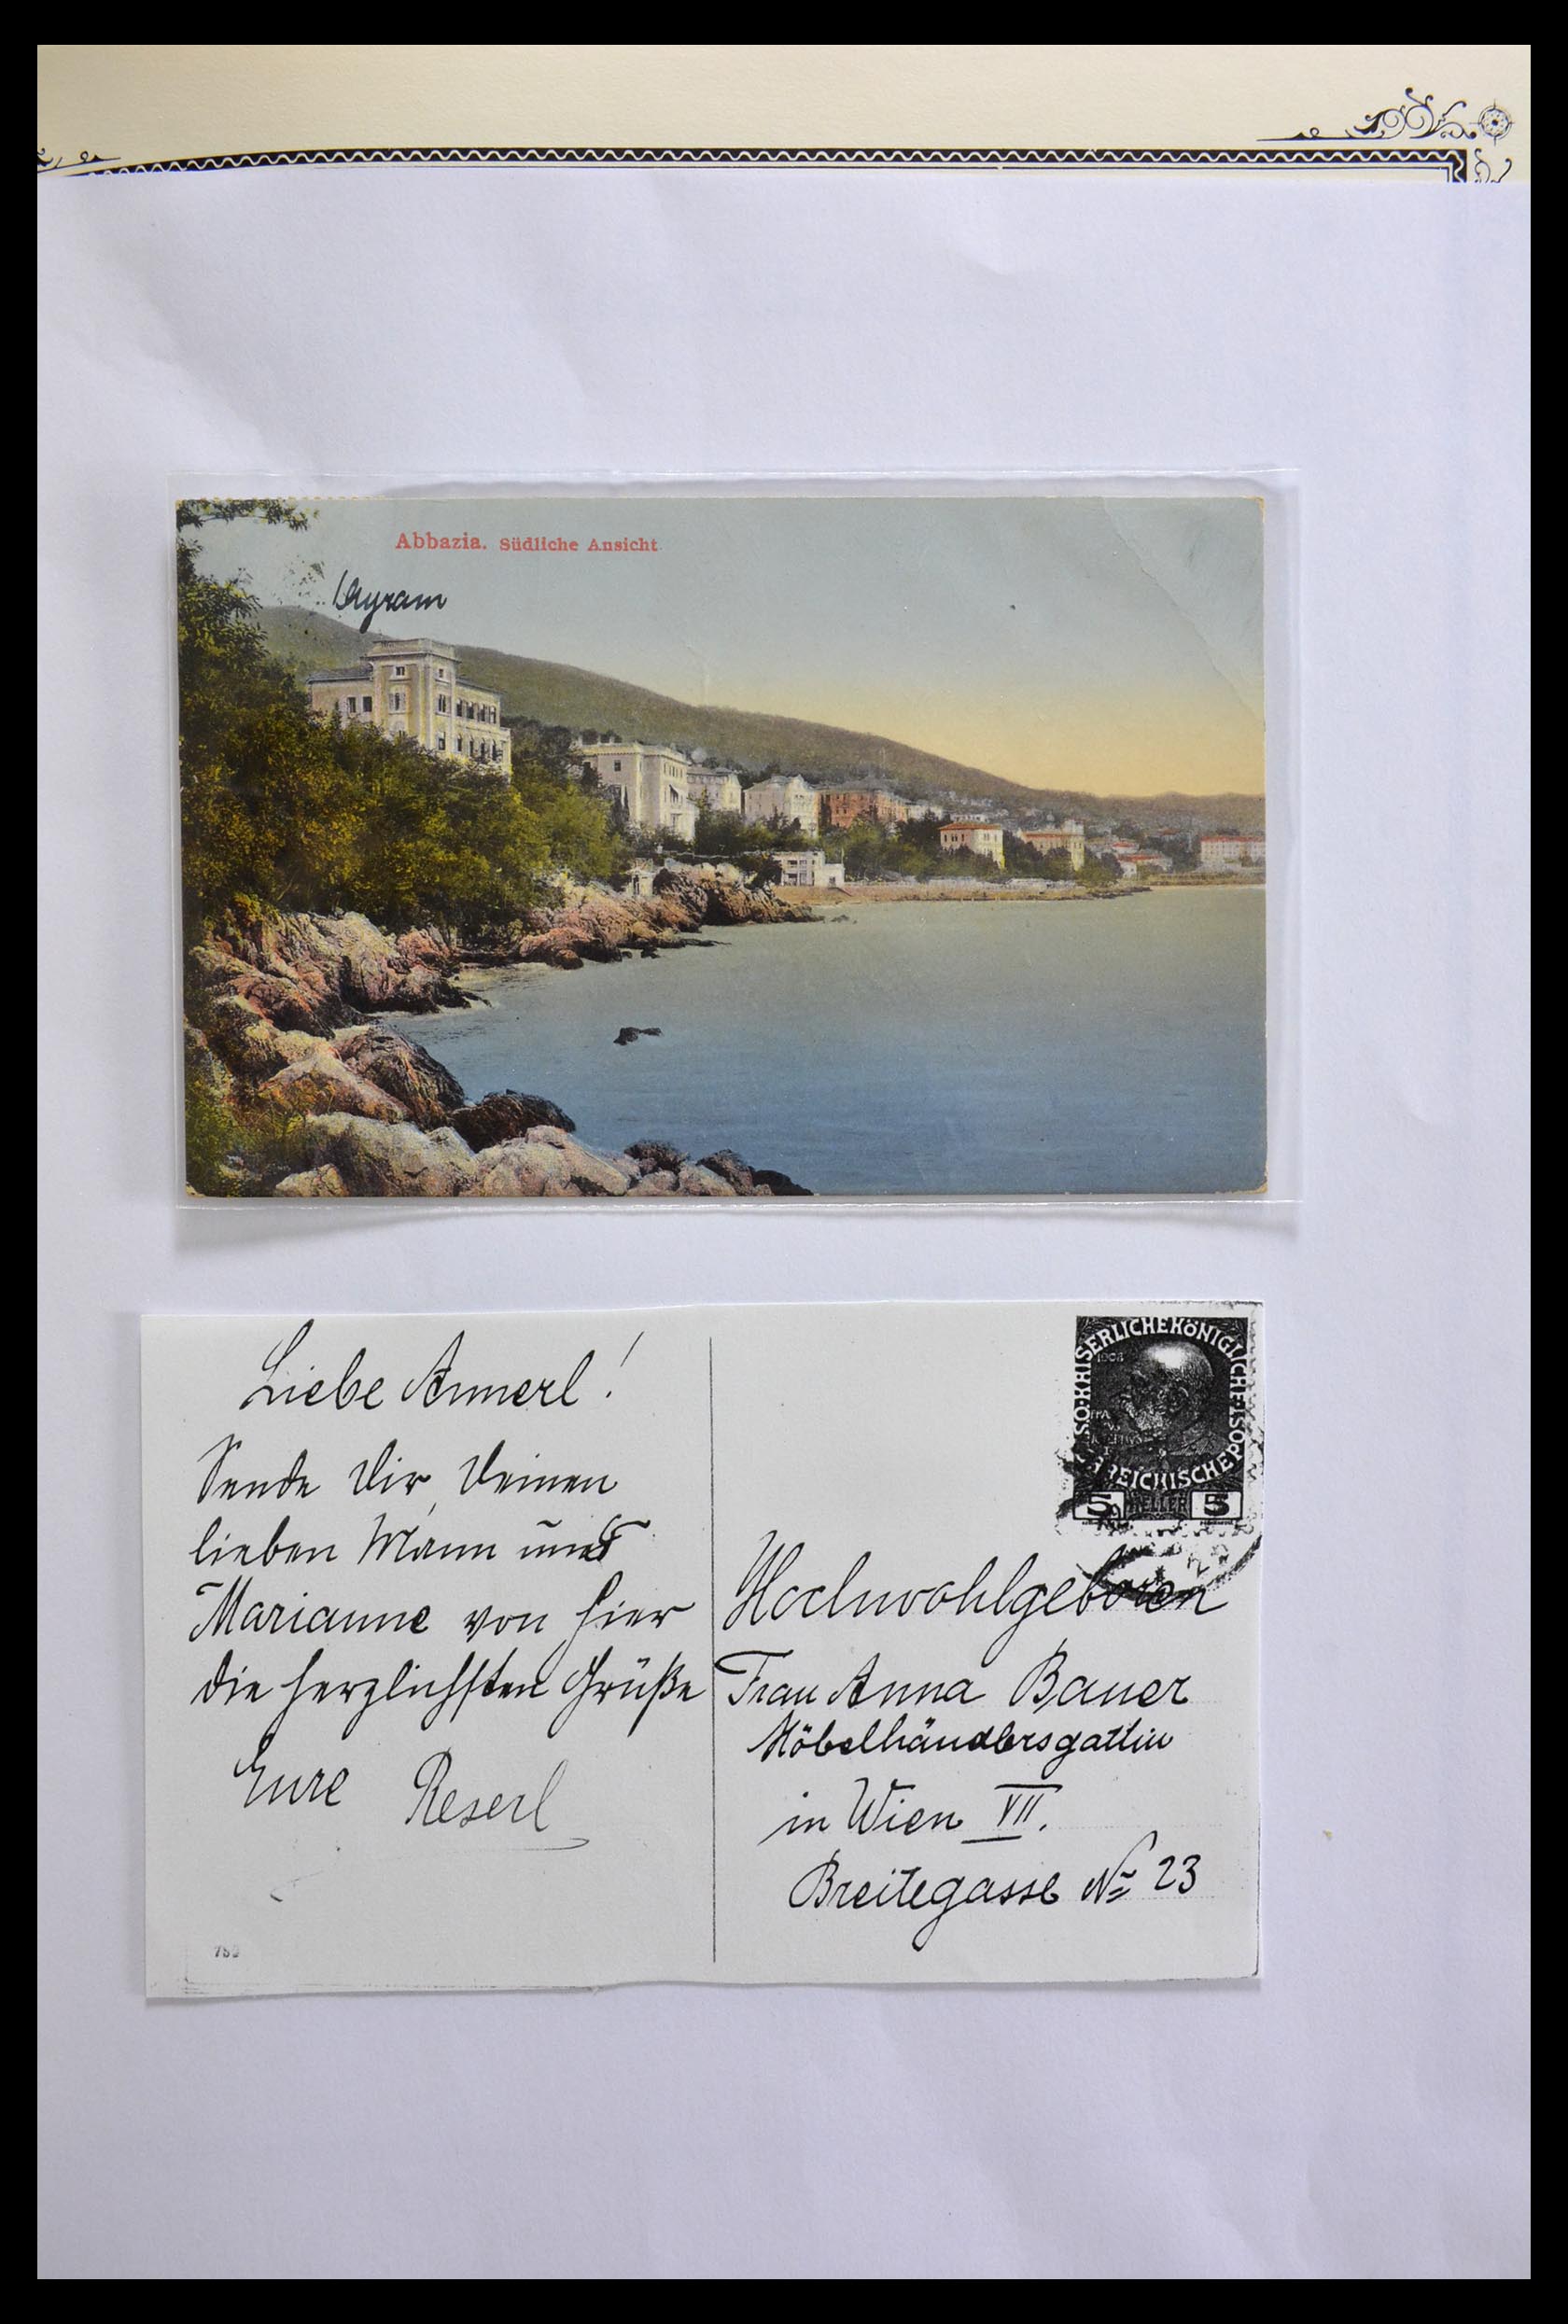 Abbazia. Südliche Ansicht
Liebe Annerl!
Sende Dir, Deinen
lieben Mann und
Marianne von hier
die herzlichsten Grüße
Eure Reserl
KAISERLICHE KÖNIGLICHE ÖSTERREICHISCHE POST
1908
5 HELLER 5
Hochwohlgeboren
Frau Anna Bauer
Möbelhändlersgattin
in Wien VII.
Breitegasse No 23